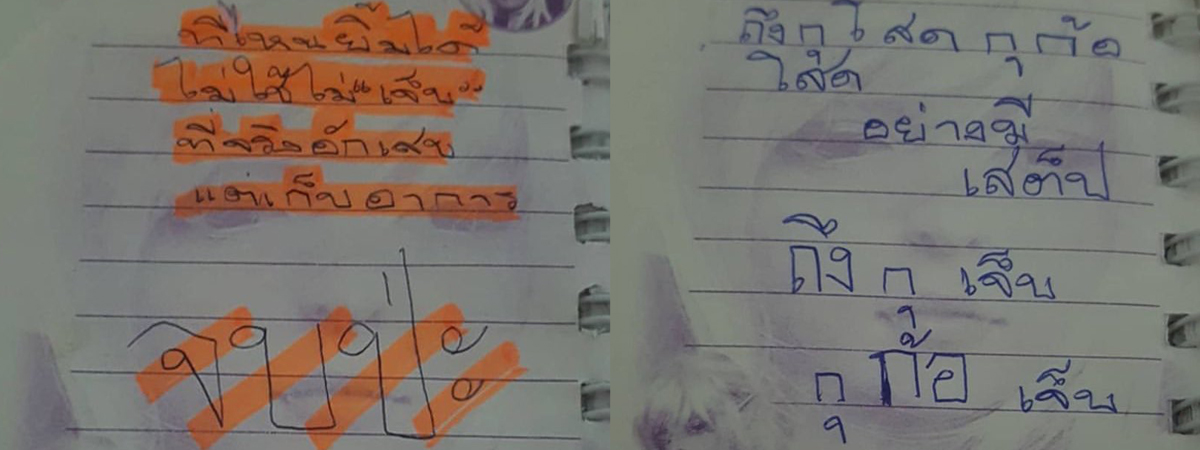 ที่เหนยิ้มได้
ไม่ใช่ไม่"เจ็บ"
ที่จริงอักเสบ
แต่เก็บอาการ
จบป่ะ
ถึงกุโสด กุก้อ
โสด
อย่างมี
เสต็ป
ถึง กุ เจ็บ
กุ ก้อ เจ็บ